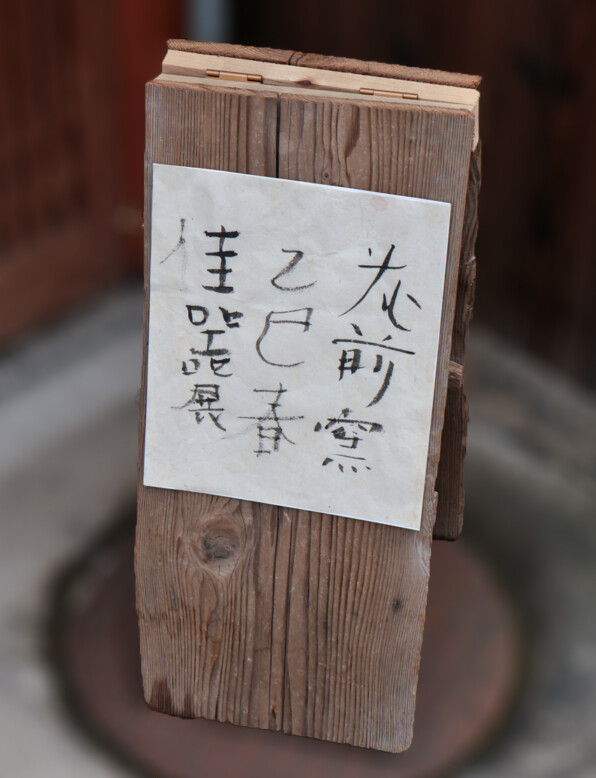 前窯
乙巳春
佳器展